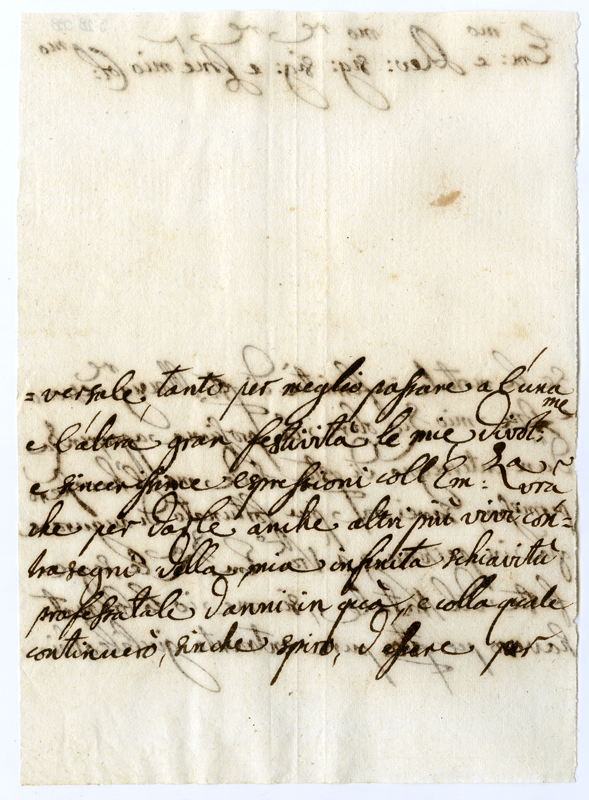 =versale, tanto per meglio passare a l'una
e l'altra gran festività le mie divot.me
e sincerissime espressioni coll'Em:za vrã
che per darle anche altri più vivi con=
trasegni della mia infinita schiavitù
professatale d'anni in quà, e colla quale
continuerò, sinche spiro, d'essere per